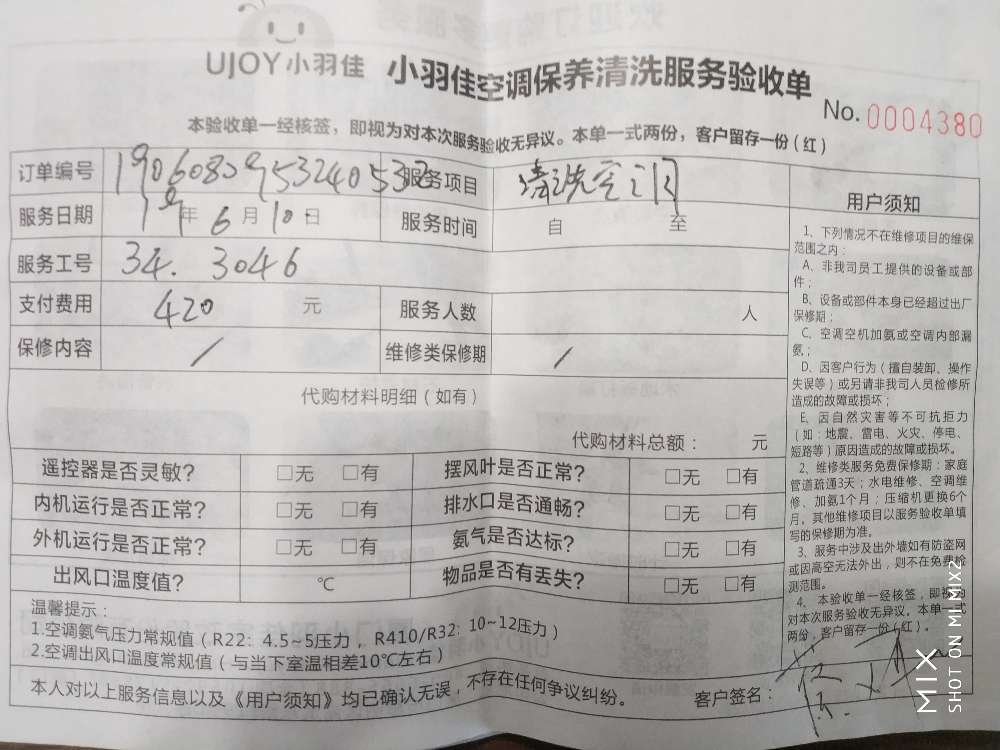 UJOY小羽佳 小羽佳空调保养清洗服务验收单
No. 0004380
本验收单一经核签，即视为对本次服务验收无异议。本单一式两份，客户留存一份（红）
订单编号 服务项目 清洗空调
服务日期 19年 6月 10日 服务时间 自 至
服务工号 34. 3046
支付费用 420 元 服务人数 人
保修内容 / 维修类保修期 /
代购材料明细（如有）
代购材料总额： 元
遥控器是否灵敏？ □无 □有 摆风叶是否正常？ □无 □有
内机运行是否正常？ □无 □有 排水口是否通畅？ □无 □有
外机运行是否正常？ □无 □有 氨气是否达标？ □无 □有
出风口温度值？ ℃ 物品是否有丢失？ □无 □有
温馨提示：
1.空调氨气压力常规值（R22：4.5~5压力，R410/R32：10~12压力）
2.空调出风口温度常规值（与当下室温相差10℃左右）
本人对以上服务信息以及《用户须知》均已确认无误，不存在任何争议纠纷。 客户签名：
用户须知
1、下列情况不在维修项目的维保
范围之内：
A、非我司员工提供的设备或部
件；
B、设备或部件本身已经超过出厂
保修期；
C、空调空机加氨或空调内部漏
氨；
D、因客户行为（擅自装卸、操作
失误等）或另请非我司人员检修所
造成的故障或损坏；
E、因自然灾害等不可抗拒力
（如：地震、雷电、火灾、停电、
短路等）原因造成的故障或损坏。
2、维修类服务免费保修期：家庭
管道疏通3天；水电维修、空调维
修、加氨1个月；压缩机更换6个
月。其他维修项目以服务验收单填
写的保修期为准。
3、服务中涉及出外墙如有防盗网
或因高空无法外出，则不在免费检
测范围。
4、本验收单一经核签，即视为
对本次服务验收无异议。本单一式
两份，客户留存一份（红）。
MIX
SHOT ON MI MIX2